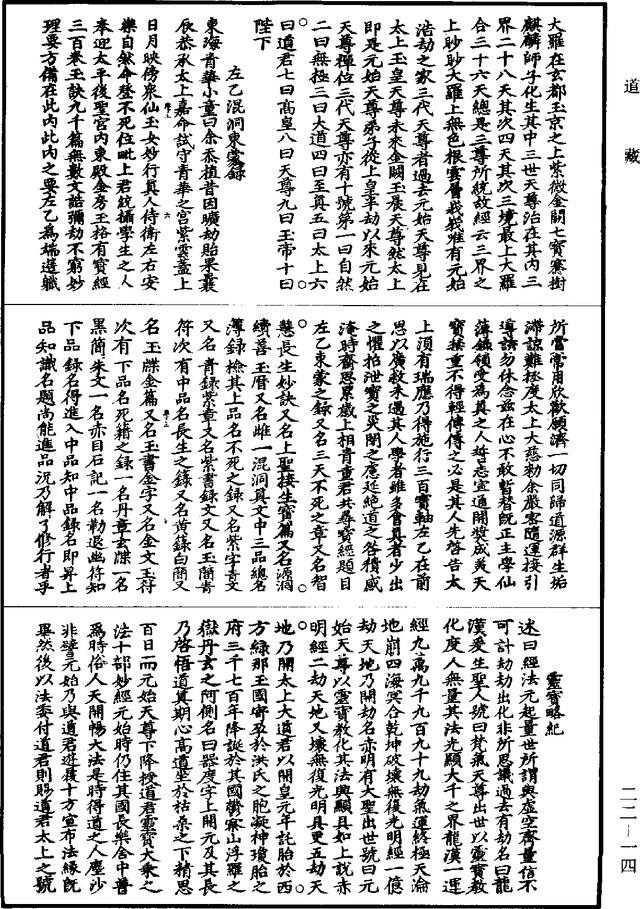 道藏
大羅在玄都玉京之上紫微金闕七寶騫樹
麒麟師子化生其中三世天尊治在其內三
界二十八天其次四天其次三境最上大羅
合三十六天總是三尊所統故經云三界之
上眇眇大羅上無色根雲層峩峩唯有元始
浩劫之家三代天尊者過去元始天尊見在
太上玉皇天尊未來金闕玉晨天尊然太上
即是元始天尊弟子從上皇半劫以來元始
天尊禪位三代天尊亦有十號第一曰自然
二曰無極三曰大道四曰至真五曰太上六
曰道君七曰高皇八曰天尊九曰玉帝十曰
陛下
左乙混洞東蒙録
東海青華小童曰余忝植昔因曠劫貽果曩
辰恭承太上嘉命試守青華之宮紫雲蓋上
日月映傍衆仙玉女妙行真人侍衛左右安
樂自然命登不死位毗上君統攝學生之人
奉迎太平後聖宮內東殿金房玉格有寶經
三百卷玉訣九千篇無數文誥彌劫不窮妙
理要方備在此內此內之要左乙為端選軄
所當常用欣歡願濟一切同歸道源群生垢
滯諒難拯度太上大慈勑余嚴家隨運接引
導誘勿休念兹在心不敢暫替旣正主學仙
薄錄領受為真之人誓志宣通開奬成美天
寶接重不得輕傳傳之必是其人先啓告太
上須有瑞應乃得施行三百寶軸左乙在前
思以廣救未遇其人學者雖多會真者少出
之懼招泄寶之災閉之慮延絶道之咎積感
淹時齋思累歲上相青童君共尋寶經題目
左乙東蒙之録又名三天不死之章又名智
慧長生妙訣又名上聖接生寶篇又名源洞
續善玉曆又名雌一混洞真文中三品總名
簿録檢其上品名不死之録又名紫字青文
又名青録紫章又名紫書録文又名玉簡青
符次有中品名長生之錄又名黄籙白簡又
名玉牒金篇又名玉書金字又名金文玉符
次有下品名死籍之録一名丹章玄牒一名
黑簡朱文一名赤目石記一名勒退幽符知
下品録名得進入中品知中品録名即昇上
品知識名題尚能進品況乃解了修行者乎
靈寶略紀
述曰經法元起量世所謂與虛空齊量信不
可計劫劫出化非所思議過去有劫名曰龍
漢爰生聖人號曰梵氣天尊出世以靈寶教
化度人無量其法光顯大千之界龍漢一運
經九萬九千九百九十九劫氣運終極天淪
地崩四海冥合乾坤破壞無復光明經一億
劫天地乃開劫名赤明有大聖出世號曰元
始天尊以靈寶教化其法興顯具如上説赤
明經二劫天地又壞無復光明具更五劫天
地乃開太上大道君以開皇元年託胎於西
方緑那玉國寄孕於洪氏之胞凝神瓊胎之
府三千七百年降誕於其國鬱察山浮羅之
嶽丹玄之阿側名曰器度字上開元及其長
乃啓悟道真期心高道坐於枯桑之下精思
百日而元始天尊下降授道君靈寶大乘之
法十部妙經元始時仍住其國長樂舍中普
為時俗人天開暢大法是時得道之人塵沙
非譬元始乃與道君遊履十方宣布法緣旣
畢然後以法委付道君則賜道君太上之號
二二—一四